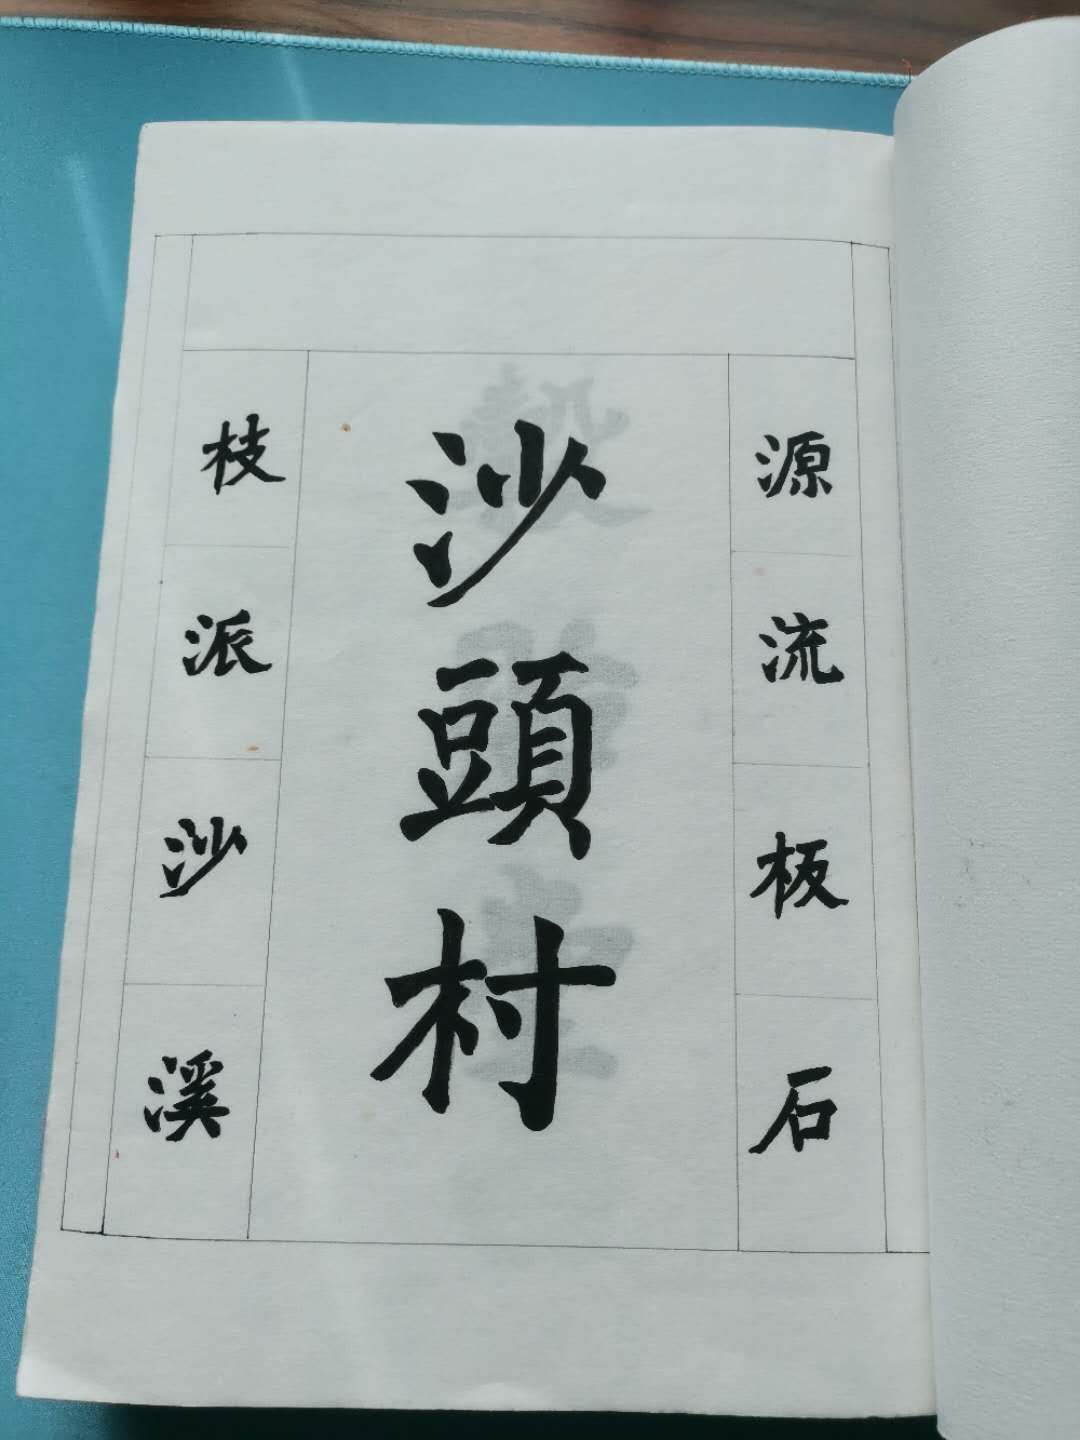 源流板石
沙頭村
枝派沙溪